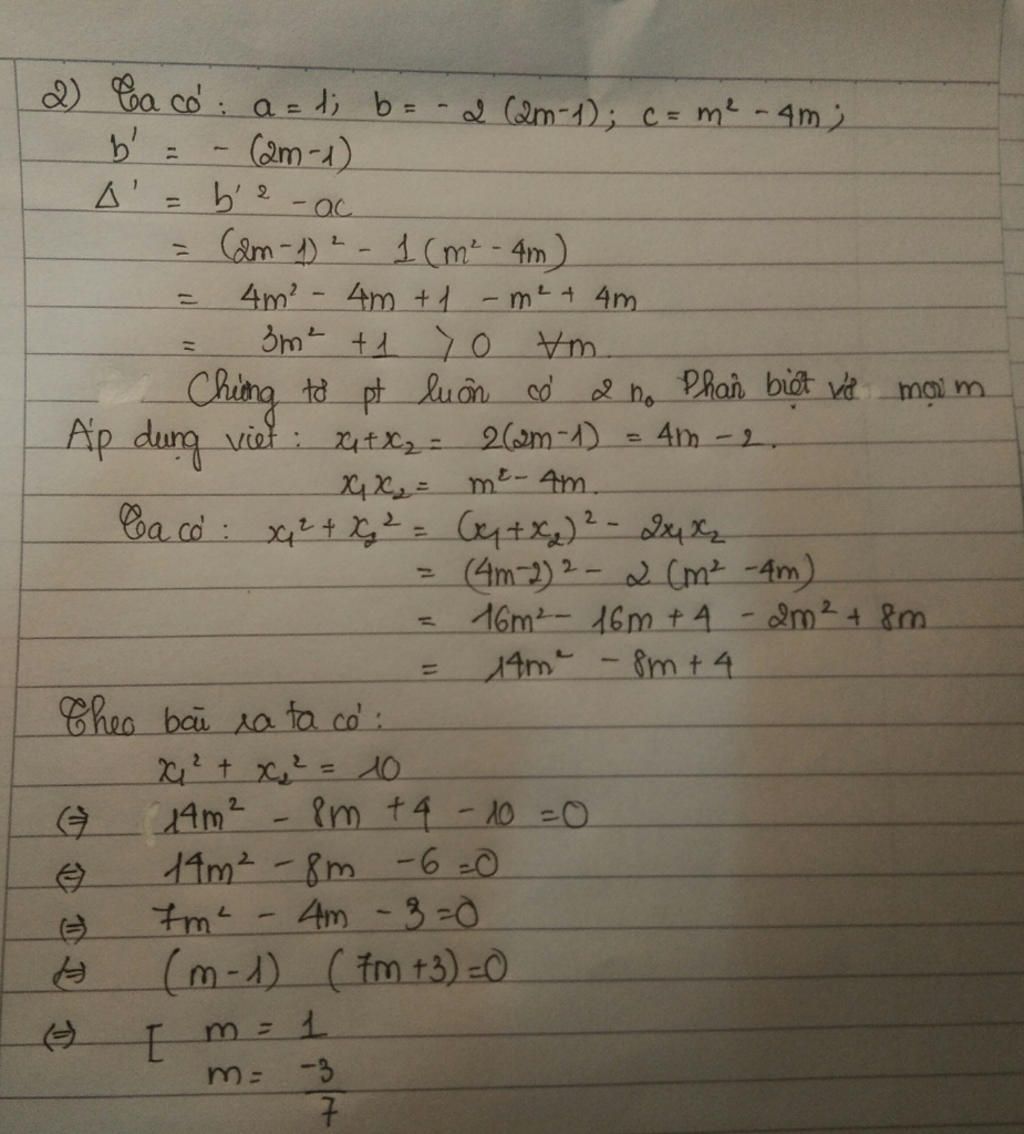 2) Ta có: a = 1; b = - 2 (2m-1); c = m² - 4m;
b' = - (2m-1)
Δ' = b'² - ac
= (2m-1)² - 1 (m² - 4m)
= 4m² - 4m + 1 - m² + 4m
= 3m² + 1 > 0 ∀m.
Chứng tỏ pt luôn có 2 n₀ phân biệt với mọi m
Áp dụng viet: x₁+x₂ = 2(2m-1) = 4m - 2.
x₁x₂ = m² - 4m.
Ta có: x₁² + x₂² = (x₁+x₂)² - 2x₁x₂
= (4m-2)² - 2 (m² - 4m)
= 16m² - 16m + 4 - 2m² + 8m
= 14m² - 8m + 4
Theo bài ra ta có:
x₁² + x₂² = 10
⇔ 14m² - 8m + 4 - 10 = 0
⇔ 14m² - 8m - 6 = 0
⇔ 7m² - 4m - 3 = 0
⇔ (m-1) (7m+3) = 0
⇔ [ m = 1
m = -3/7